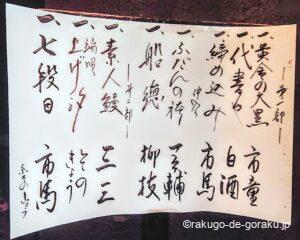 ―第一部―
一、黄金の大黒 市童
一、代書や 白酒
一、締め込み 市馬
仲入り
一、ふだんの袴 一之輔
一、船徳 柳枝
―第二部―
一、素人鰻 三三
一、端唄 上げ汐 そのきょう
一、七段目 市馬
©rakugo-de-goraku.jp